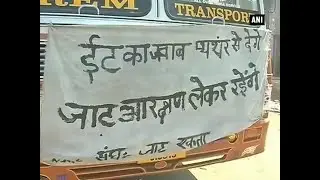 TRANSPORT
ANI
ईट का जवाब पत्थर से देगे
जाट आरक्षण लेकर रहेंगे
जाट एकता